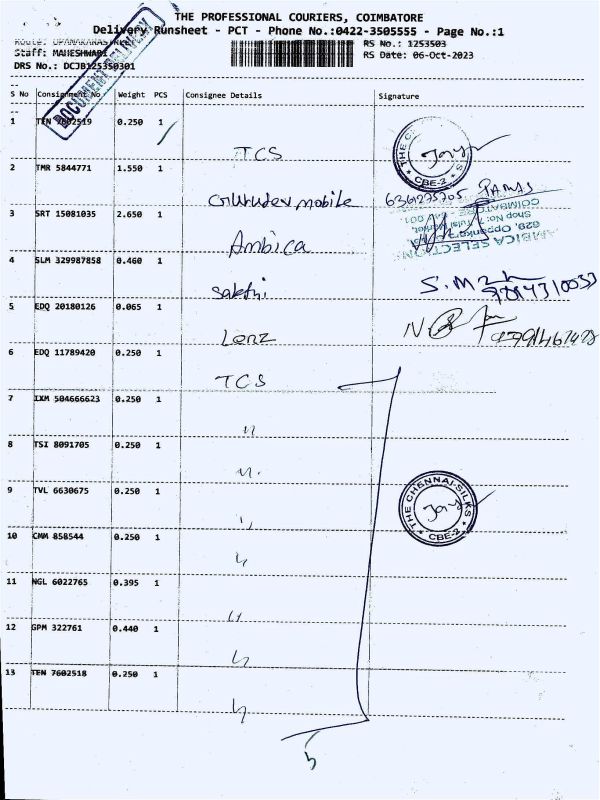 THE PROFESSIONAL COURIERS, COIMBATORE
Delivery Runsheet - PCT - Phone No.:0422-3505555 - Page No.:1
Route: UPANAKARASTREET RS No.: 1253503
Staff: MAHESHWARI RS Date: 06-Oct-2023
DRS No.: DCJB125350301
DOCUMENT DELIVERY
S No Consignment No Weight PCS Consignee Details Signature
1 TEN 7602519 0.250 1 TCS
THE C S CBE-2
2 TMR 5844771 1.550 1 Gurudev mobile 6361275705
3 SRT 15081035 2.650 1 Ambica
AMBICA SELECTION
Shop No: 7, Tulsi Market,
COIMBATORE - 641 001
4 SLM 329987858 0.460 1 sakthi
5 EDQ 20180126 0.065 1 Lenz
6 EDQ 11789420 0.250 1 TCS
7 IXM 504666623 0.250 1 "
8 TSI 8091705 0.250 1 "
9 TVL 6630675 0.250 1 "
THE CHENNAI-SILKS CBE-2
10 CMM 858544 0.250 1 "
11 NGL 6022765 0.395 1 "
12 GPM 322761 0.440 1 "
13 TEN 7602518 0.250 1 "